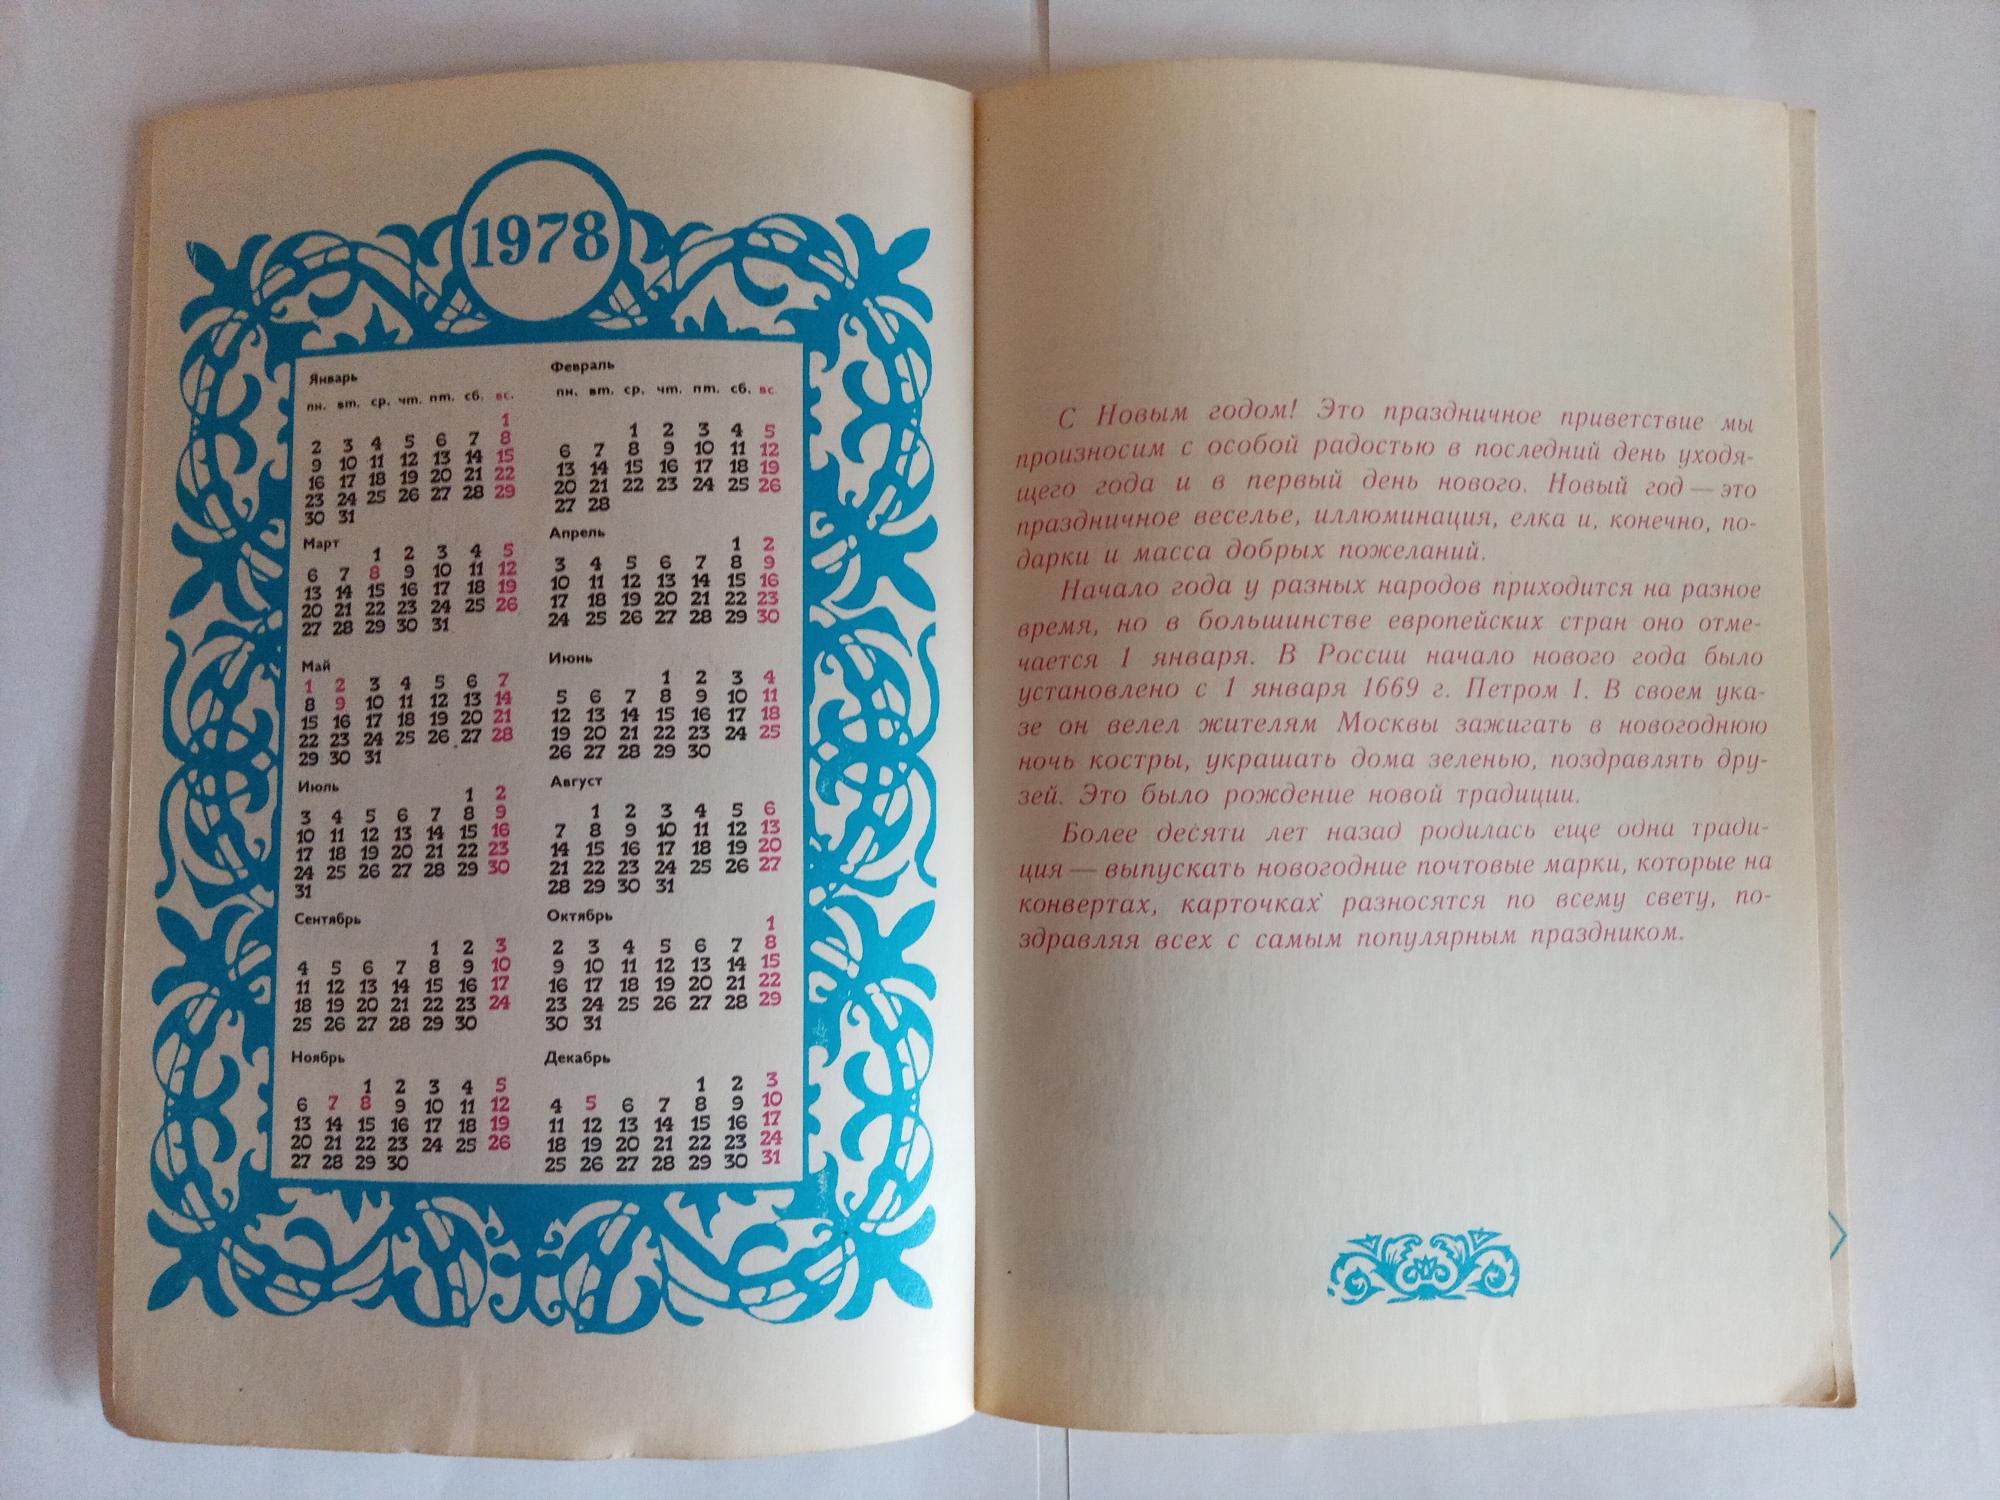 1978
Январь
пн. вт. ср. чт. пт. сб. вс.
1
2 3 4 5 6 7 8
9 10 11 12 13 14 15
16 17 18 19 20 21 22
23 24 25 26 27 28 29
30 31
Февраль
пн. вт. ср. чт. пт. сб. вс.
1 2 3 4 5
6 7 8 9 10 11 12
13 14 15 16 17 18 19
20 21 22 23 24 25 26
27 28
Март
1 2 3 4 5
6 7 8 9 10 11 12
13 14 15 16 17 18 19
20 21 22 23 24 25 26
27 28 29 30 31
Апрель
1 2
3 4 5 6 7 8 9
10 11 12 13 14 15 16
17 18 19 20 21 22 23
24 25 26 27 28 29 30
Май
1 2 3 4 5 6 7
8 9 10 11 12 13 14
15 16 17 18 19 20 21
22 23 24 25 26 27 28
29 30 31
Июнь
1 2 3 4
5 6 7 8 9 10 11
12 13 14 15 16 17 18
19 20 21 22 23 24 25
26 27 28 29 30
Июль
1 2
3 4 5 6 7 8 9
10 11 12 13 14 15 16
17 18 19 20 21 22 23
24 25 26 27 28 29 30
31
Август
1 2 3 4 5 6
7 8 9 10 11 12 13
14 15 16 17 18 19 20
21 22 23 24 25 26 27
28 29 30 31
Сентябрь
1 2 3
4 5 6 7 8 9 10
11 12 13 14 15 16 17
18 19 20 21 22 23 24
25 26 27 28 29 30
Октябрь
1
2 3 4 5 6 7 8
9 10 11 12 13 14 15
16 17 18 19 20 21 22
23 24 25 26 27 28 29
30 31
Ноябрь
1 2 3 4 5
6 7 8 9 10 11 12
13 14 15 16 17 18 19
20 21 22 23 24 25 26
27 28 29 30
Декабрь
1 2 3
4 5 6 7 8 9 10
11 12 13 14 15 16 17
18 19 20 21 22 23 24
25 26 27 28 29 30 31
С Новым годом! Это праздничное приветствие мы
произносим с особой радостью в последний день уходя-
щего года и в первый день нового. Новый год — это
праздничное веселье, иллюминация, елка и, конечно, по-
дарки и масса добрых пожеланий.
Начало года у разных народов приходится на разное
время, но в большинстве европейских стран оно отме-
чается 1 января. В России начало нового года было
установлено с 1 января 1669 г. Петром I. В своем ука-
зе он велел жителям Москвы зажигать в новогоднюю
ночь костры, украшать дома зеленью, поздравлять дру-
зей. Это было рождение новой традиции.
Более десяти лет назад родилась еще одна тради-
ция — выпускать новогодние почтовые марки, которые на
конвертах, карточках разносятся по всему свету, по-
здравляя всех с самым популярным праздником.